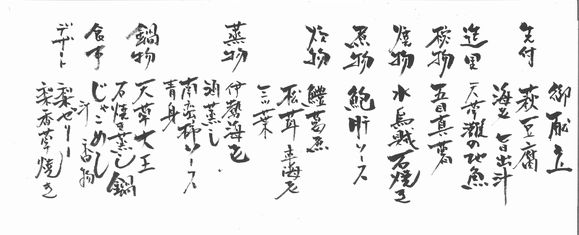 御献立
先付 萩豆腐
海老 旨出汁
造里 天草灘の地魚
碗物 五目真薯
焼物 水烏賊石焼き
煮物 鮑肝ソース
物 鱧葛
松茸 車海老
三つ葉
蒸物 伊勢海老
酒蒸し
南蛮柿ソース
青身
鍋物 天草大王
石焼き蒸し鍋
食事 じゃこめし
汁 香物
デザート 梨ゼリー
梨香草焼き